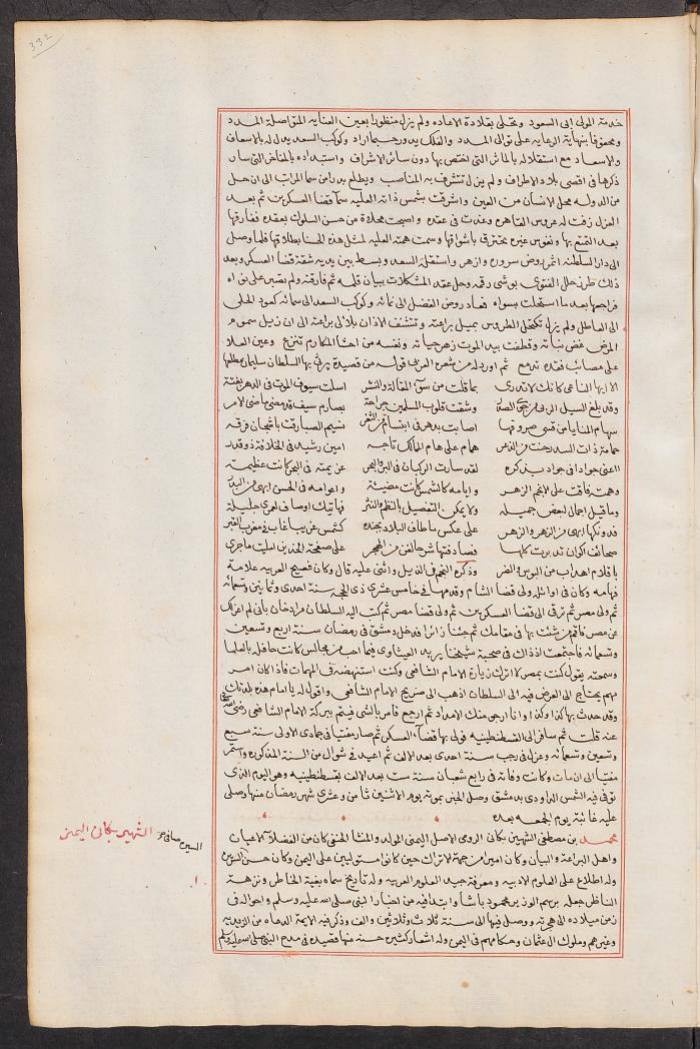 ٣٣٢
خدمة المولى ابى السعود وتحلى بقلادة الاعاده ولم يزل منظورا بعين العنايه المتواصلة المدد
ومحفوفا بنهاية الرعايه على توالى المدد والفلك يدور حسبما اراد وكوكب السعد يدل له بالاسعاف
والاسعاد مع استقلاله بالمآثر التى اختص بها دون سائر الاشراف واستبداده بالمفاخر التى سار
ذكرها فى اقصى بلاد الاطراف ولم يزل تتشرف به المناصب ويطلع بدرا من سما المراتب الى ان حل
من الدوله محل الانسان من العين واشرقت بشمس ذاته العليه سما قضا العسكرين ثم بعد
العزل زفت له عروس القاهره وغدت فى عقده واصبحت محلاة من حسن السلوك بعقده ففارقها
بعد التمتع بها ونفوس غيره تحترق باشواقها وسمت همته العليه لمثل هذه الحسنا بطلاقها فلما وصل
الى دار السلطنه اثمر روض سروره وازهر واستقله السعد وبسط بين يديه شقة قضا العسكر وبعد
ذلك طرز حلل الفتوى بوشى رقمه وحل عقد المشكلات ببيان قلمه ثم فارقته ولم تصبر على
فراجعها بعد ما استحلت سواه فعاد روض الفضل الى نمائه وكوكب السعد الى سمائه كعود الحلى
الى العاطل ولم يزل تكتحل الطروس بميل براعته وتتشنف الاذان بلالى براعته الى ان ذبل سموم
المرض غض نباته وقطفت بيد الموت زهر حياته ونفسه من احشا المكارم تنزع وعين العلا
على مصائب فقده تدمع ثم اورد له من شعره العربى قوله من قصيدة يرثى بها السلطان سليمان مطلعها
الا ايها الناعى كانك لا تدرى بما قلت من سوء المقالة والنشر اسلت سيوف الموت فى الدهر بغتة
وقد بلغ السيل الربى وشقت قلوب المسلمين جراحة بصارم سيف قد مضى ماضى الامر
سهام المنايا من قسى صروفها اصابت بدهر فى ابتسام الثغر نسيم الصبا رقت باشجان فرقه
حمامة ذات السدر حنت همام على هام الممالك تاجه امين رشيد فى الخلافة ذو قدر
اعنى جوادا فى جواد بذكره لقد سارت الركبان فى البر والبحر عزيمته فى البحر كانت عظيمة
وهمت فاقت على الانجم الزهر وايامه كالشمس كانت مضيئة واعوامه فى الحسن ابهى من البدر
وما قيل اجمال لبعض جميله ولا يمكن التفصيل بالنظم والنثر فهاتيك اوصاف لعمرى جليلة
فدونكها ابهى من الزهر والزهر على عكس ما طاف البلاد بجنده كشمس غريب غاب فى مغرب القبر
صحائف اكوان تدبرت كلها فصادفتها شرحا على صفحة الخدين امليت ماجرى
باقلام اهداب من البوس والضر وذكره النجم فى الذيل واثنى عليه قال وكان فصيح العربيه علامة
فهامه وكان فى اوائله ولى قضا الشام وقدمها فى خامس عشرى ذى الحجه سنة احدى وثمانين وتسعمائه
ثم ولى مصر ثم ترقى الى قضا العسكرين ثم ولى قضا مصر ثم كتب اليه السلطان مراد خان بانى لم اعزلك
عن مصر فاقم من شئت بها فى مقامك ثم جئنا زائرا فدخل دمشق فى رمضان سنة اربع وتسعين
وتسعمائه فاجتمعت اذ ذاك فى صحبة شيخنا يريد العيثاوى فيما احب من مجالس كانت حافله بالعلما
وسمعته يقول كنت بمصر كما اترك زيارة الامام الشافعى وكنت استنهضه فى المهمات فاذا كان امر
مهم يحتاج الى العرض فيه الى السلطان اذهب الى ضريح الامام الشافعى واقول له يا امام هذه بلدتك
وقد حدث بها كذا وكذا وانا ارجو منك الامداد ثم ارجع فآمر بالشى فيتم ببركة الامام الشافعى رضى الله
عنه قلت ثم سافر الى القسطنطينيه فولى بها قضاء العسكر ثم صار مفتيا فى جمادى الاولى سنة سبع
وتسعين وتسعمائه وعزل فى رجب سنة احدى بعد الالف ثم اعيد فى شوال من السنة المذكوره واستمر
مفتيا الى ان مات وكانت وفاته فى رابع شعبان سنة ست بعد الالف بقسطنطينيه وهو اليوم الذى
توفى فيه الشمس الداودى بدمشق وصل الخبر بموته يوم الاثنين ثامن وعشرى شهر رمضان منها وصلى
عليه غائبة يوم الجمعه بعده
محمد بن مصطفى الشهير بكانى الرومى الاصل اليمنى المولد والمنشا الحنفى كان من الفضلاء الاعيان
واهل البراعة والبيان وكان اميرا من جهة الاتراك حين كانوا مستوليين على اليمن وكان حسن
وله اطلاع على العلوم الادبيه ومعرفة جيد العلوم العربيه وله تاريخ سماه بغية الخاطر ونزهة
الناظر جعله برسم الوزير محمود باشا وابتدا فيه من اخبار النبى صلى الله عليه وسلم واحواله فى
زمن ميلاده الى هجرته ووصل فيها الى سنة ثلاث وثلاثين والف وذكر فيه الايمة الدعاه من الزيديه
وغيرهم وملوك ال عثمان وحكامهم فى اليمن وله اشعار كثيره حسنه منها قصيده فى مدح النبى صلى الله عليه وسلم
الشهير بكانى اليمنى